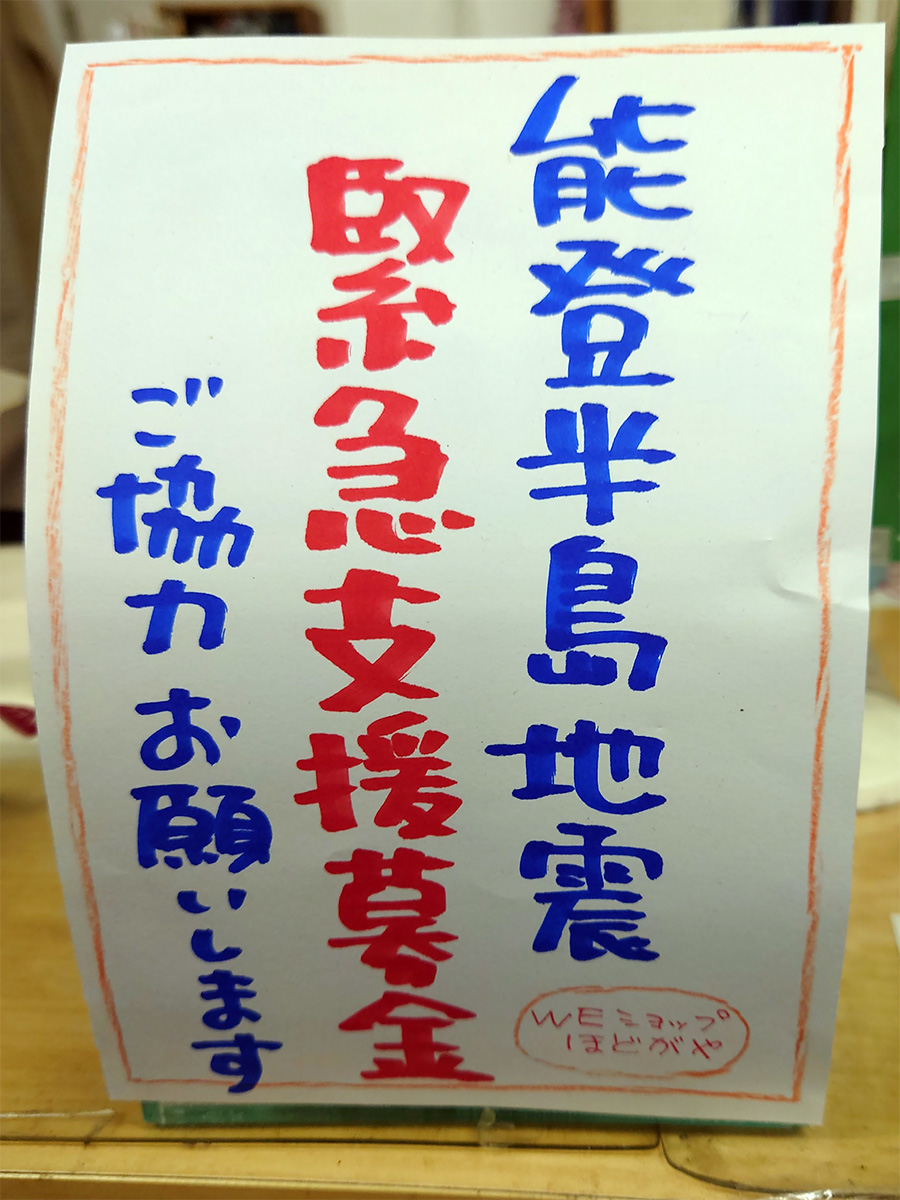 能登半島地震
緊急支援募金
ご協力お願いします
WEショップ
ほどがや